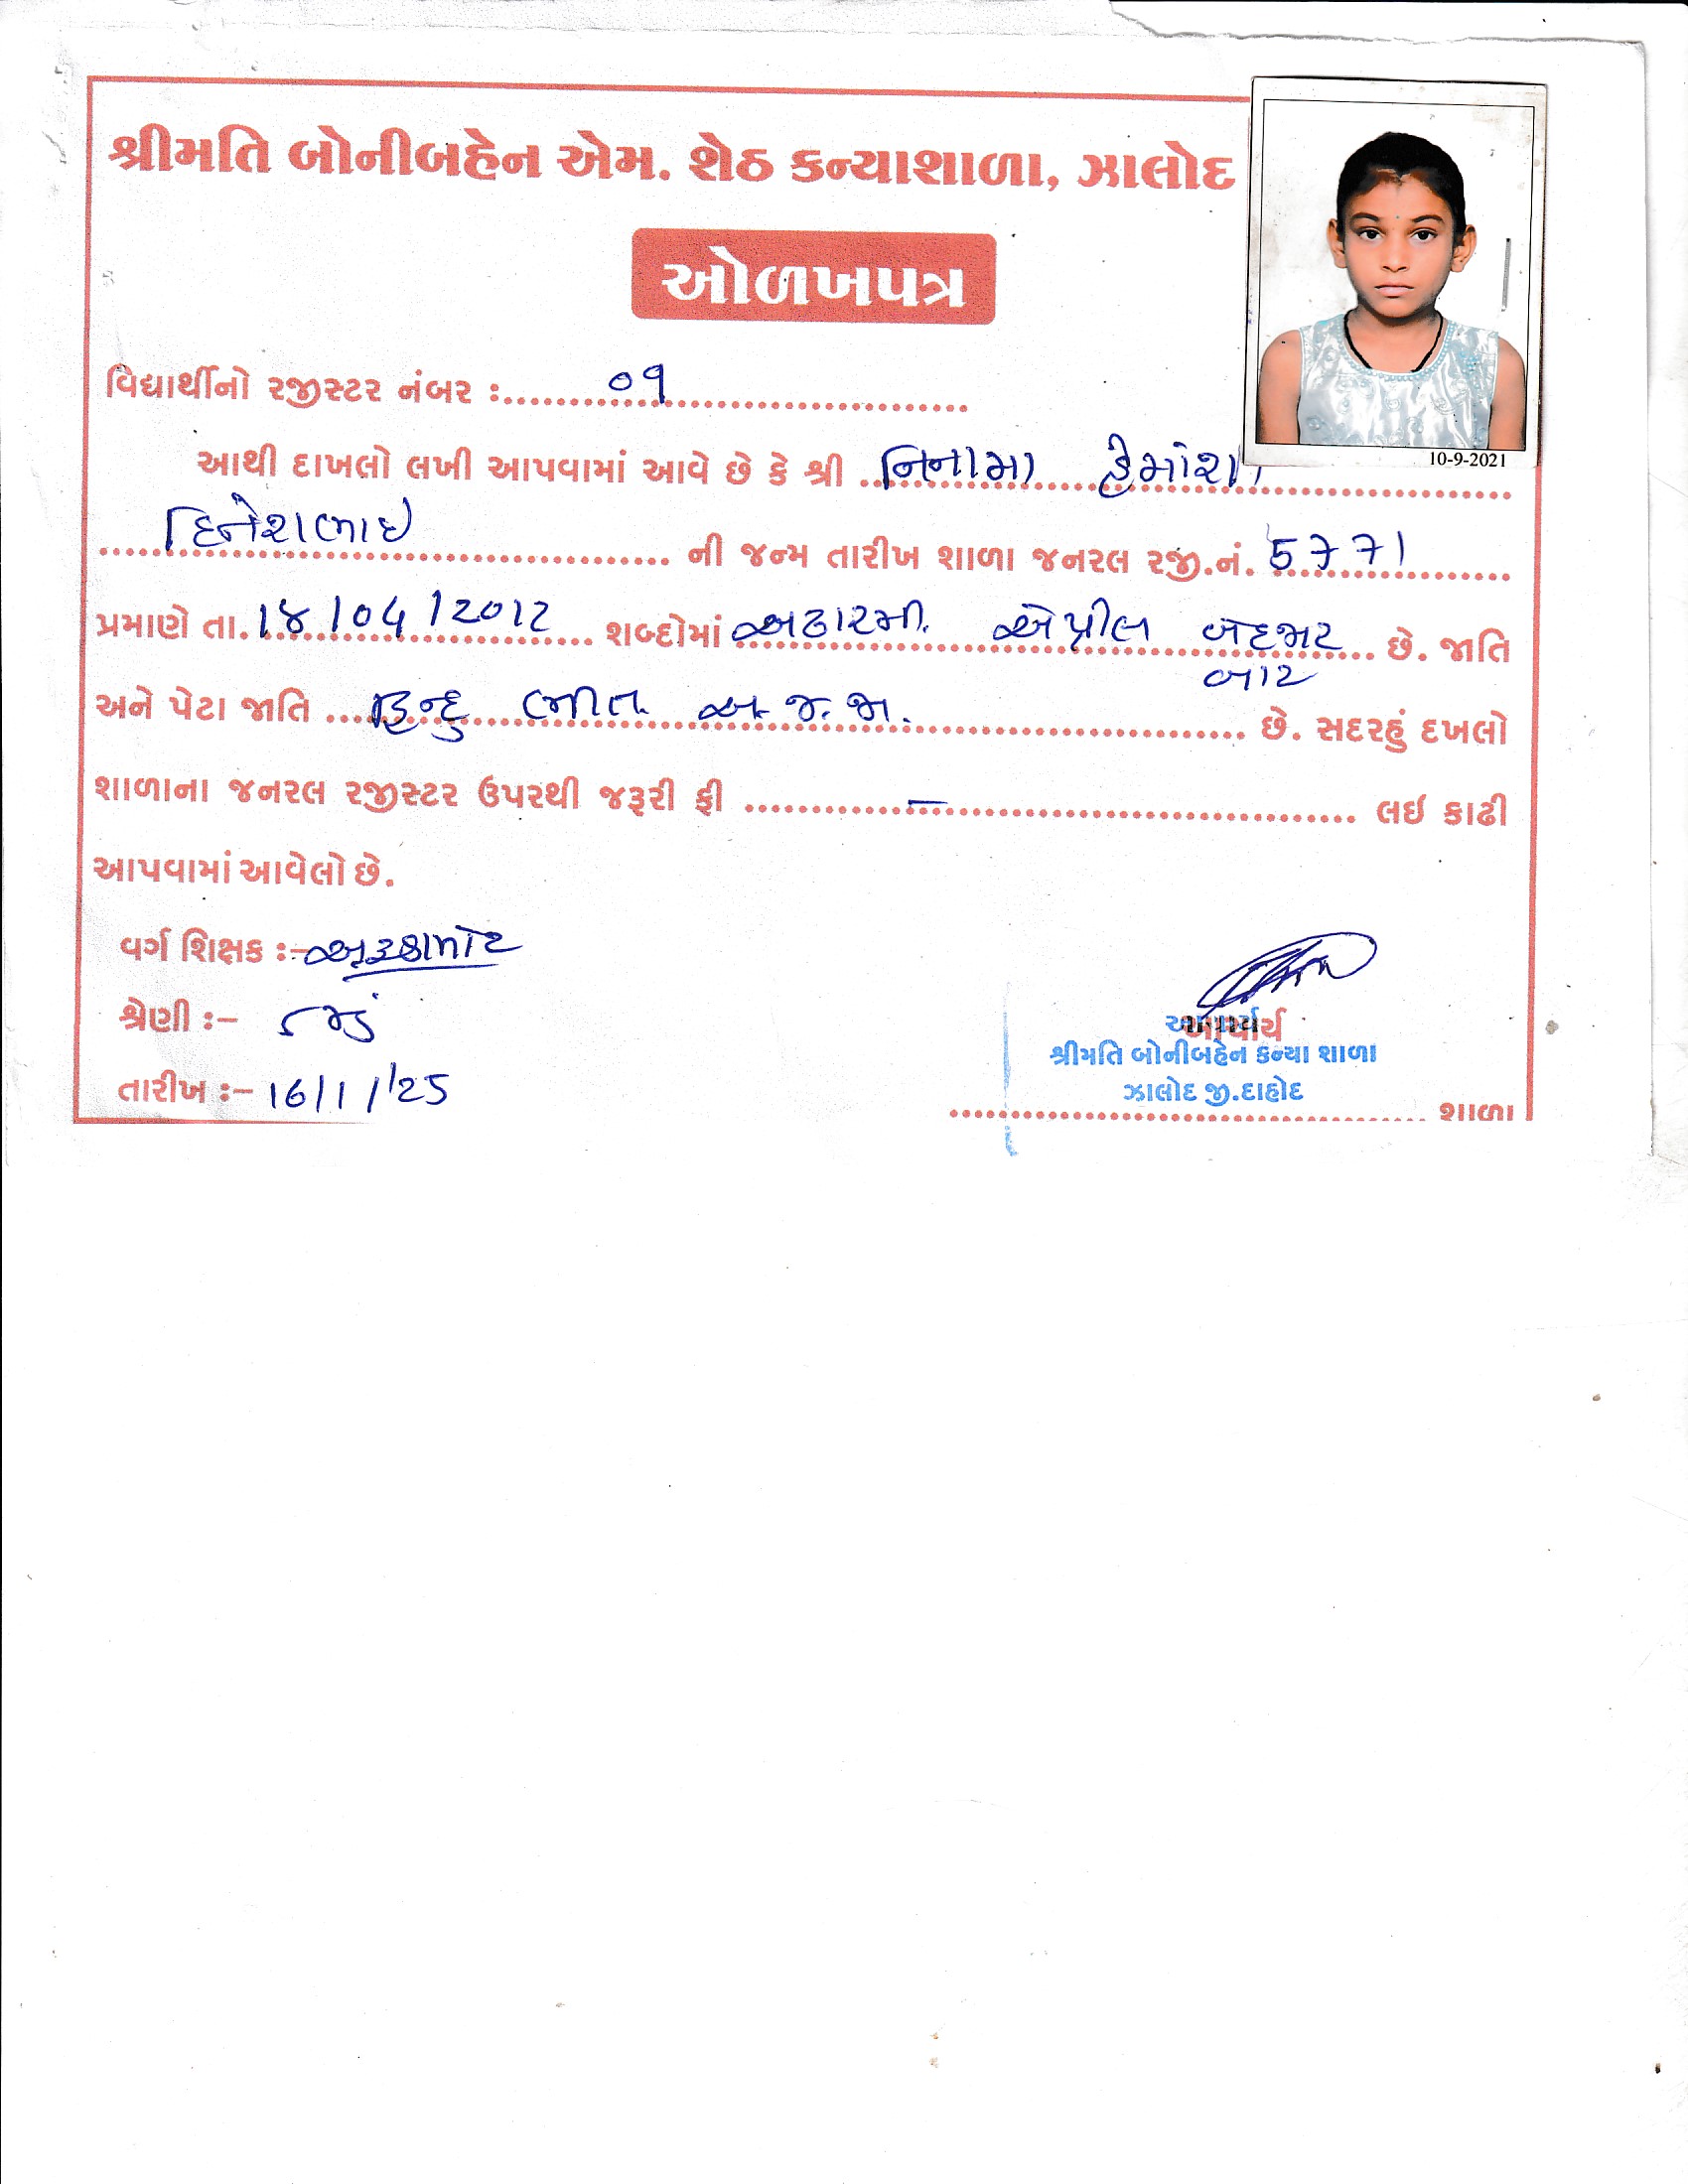 શ્રીમતિ બોનીબહેન એમ. શેઠ કન્યાશાળા, ઝાલોદ
ઓળખપત્ર
વિદ્યાર્થીનો રજીસ્ટર નંબર :- 09
10-9-2021
આથી દાખલો લખી આપવામાં આવે છે કે શ્રી નિનામા
દિનેશભાઇ ની જન્મ તારીખ શાળા જનરલ રજી.નં. 5771
પ્રમાણે તા. 18/04/2012 શબ્દોમાં અઢારમી એપ્રીલ છે. જાતિ
બાર
અને પેટા જાતિ હિન્દુ ભીલ અ.જ.જા. છે. સદરહું દખલો
શાળાના જનરલ રજીસ્ટર ઉપરથી જરૂરી ફી — લઇ કાઢી
આપવામાં આવેલો છે.
વર્ગ શિક્ષક :-
શ્રેણી :-
તારીખ :- 16/1/25
આચાર્ય
શ્રીમતિ બોનીબહેન કન્યા શાળા
ઝાલોદ જી.દાહોદ
શાળા